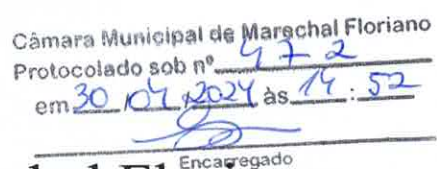 Câmara Municipal de Marechal Floriano
Protocolado sob nº 472
em 30/04/2024 às 14:52
Encarregado